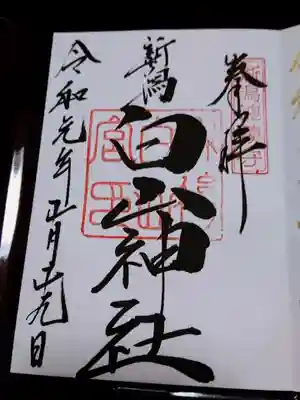 奉拝
新潟
白山神社
令和元年五月廿九日